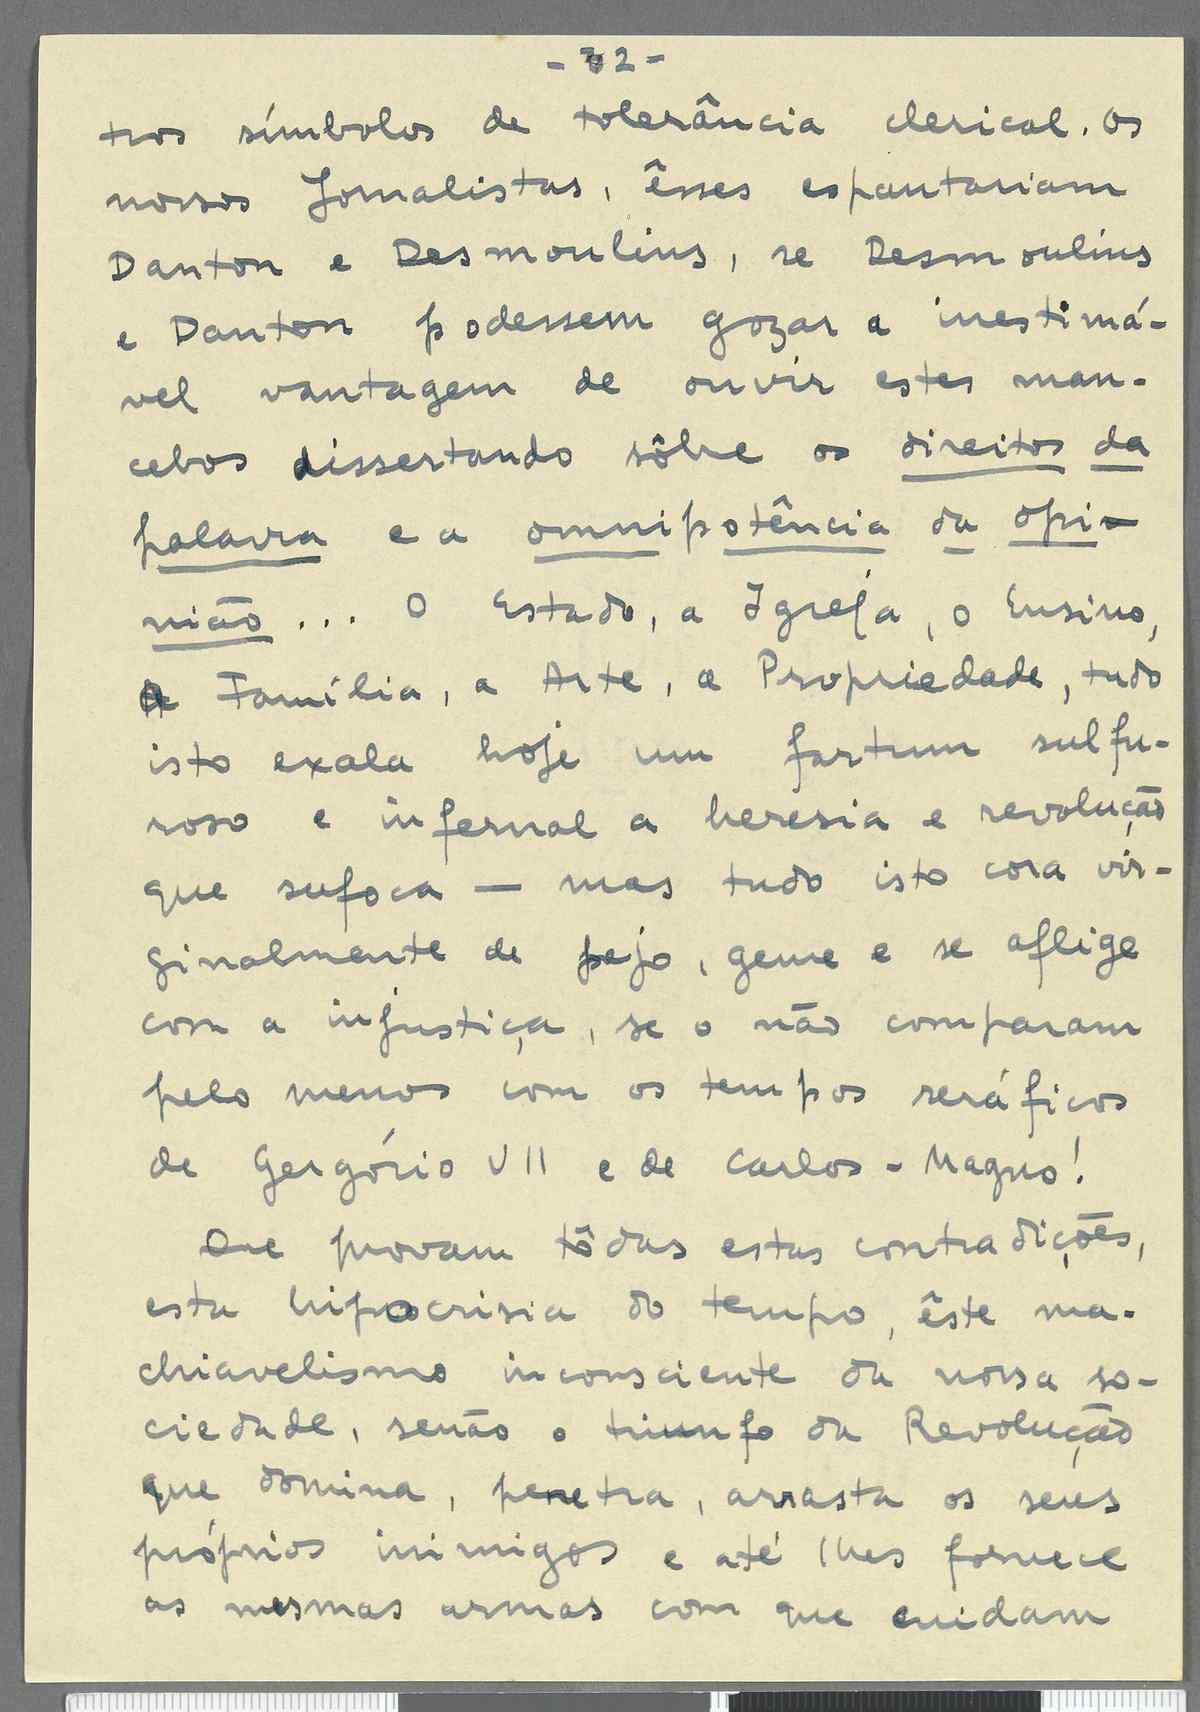 - 32 -
tros símbolos de tolerância clerical. Os
nossos Jornalistas, êsses espantariam
Danton e Desmoulins, se Desmoulins
e Danton podessem gozar a inestimá-
vel vantagem de ouvir estes man-
cebos dissertando sôbre os direitos da
palavra e a omnipotência da opi-
nião... O Estado, a Igreja, o Ensino,
a Família, a Arte, a Propriedade, tudo
isto exala hoje um fartum sulfu-
roso e infernal a heresia e revolução
que sufoca — mas tudo isto cora vir-
ginalmente de pejo, geme e se aflige
com a injustiça, se o não comparam
pelo menos com os tempos seráficos
de Gergório VII e de Carlos-Magno!
Que provam tôdas estas contradições,
esta hipocrisia do tempo, êste ma-
chiavelismo inconsciente da nossa so-
ciedade, senão o triunfo da Revolução
que domina, penetra, arrasta os seus
próprios inimigos e até lhes fornece
as mesmas armas com que cuidam